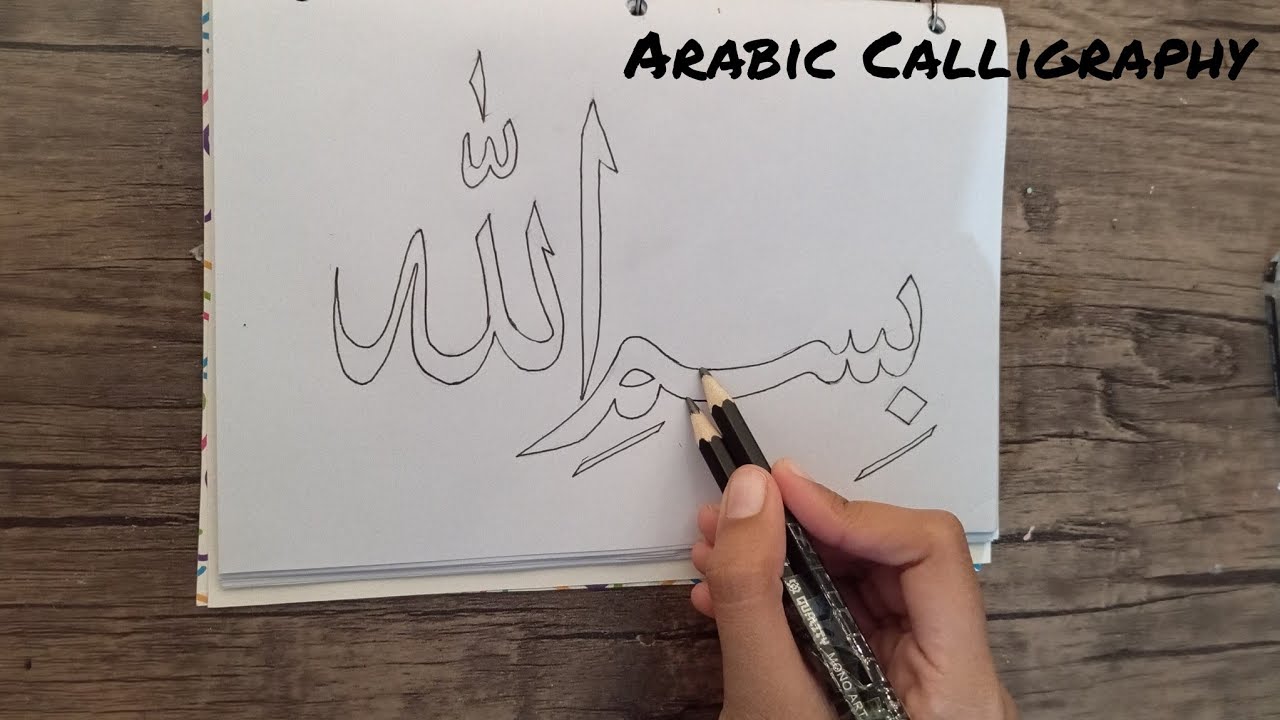 Arabic Calligraphy
بِسمِ اللّٰه
MONO